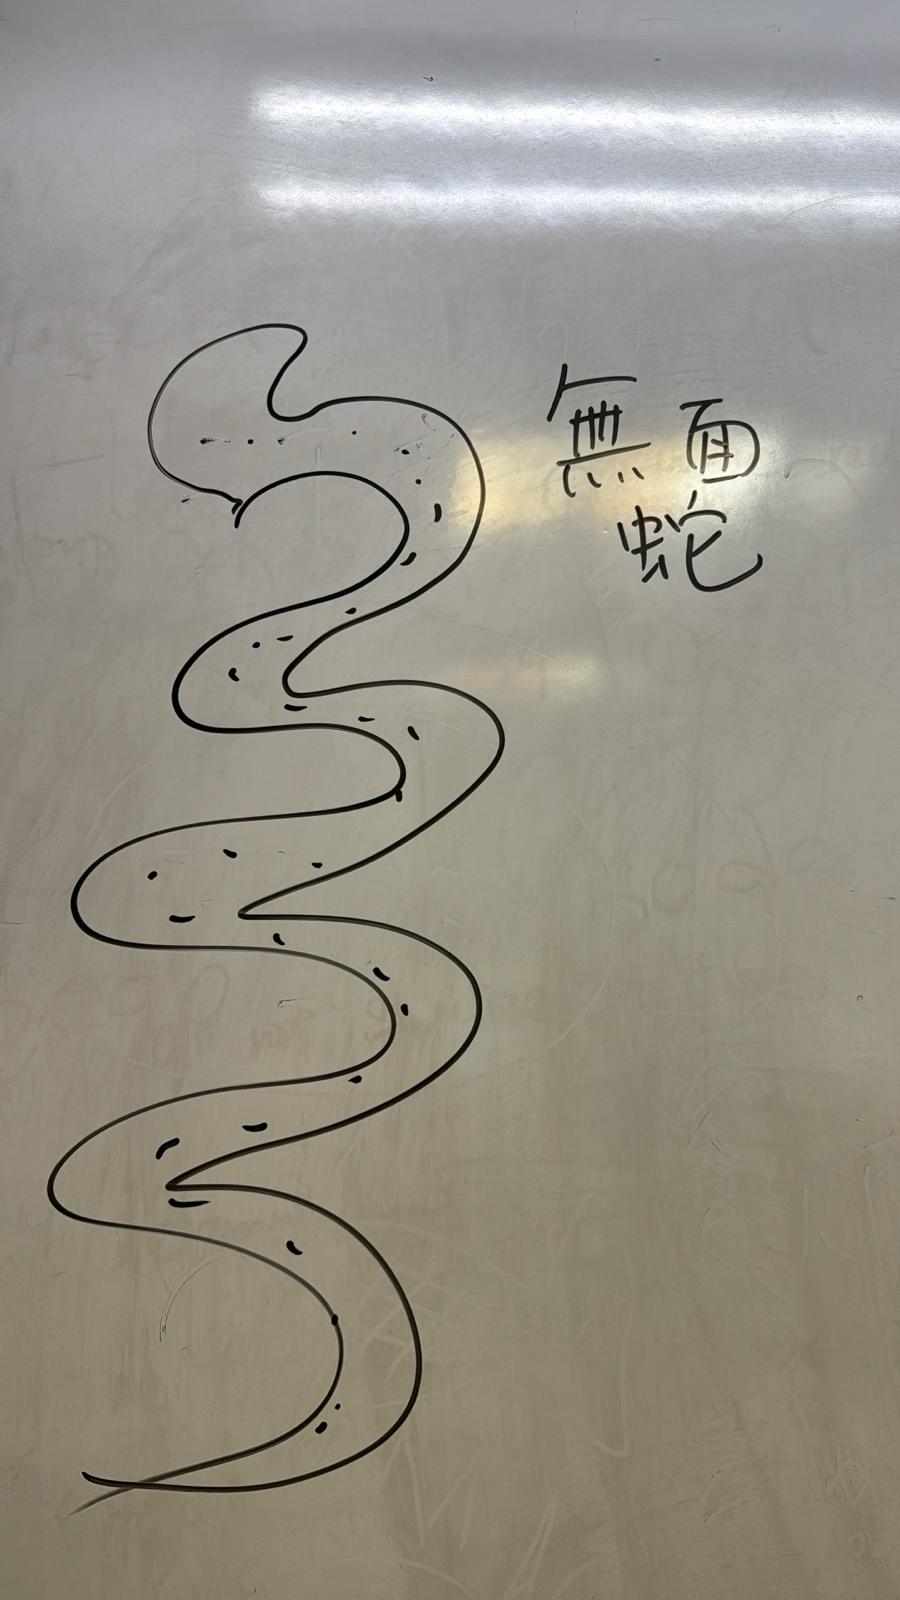 無面
蛇